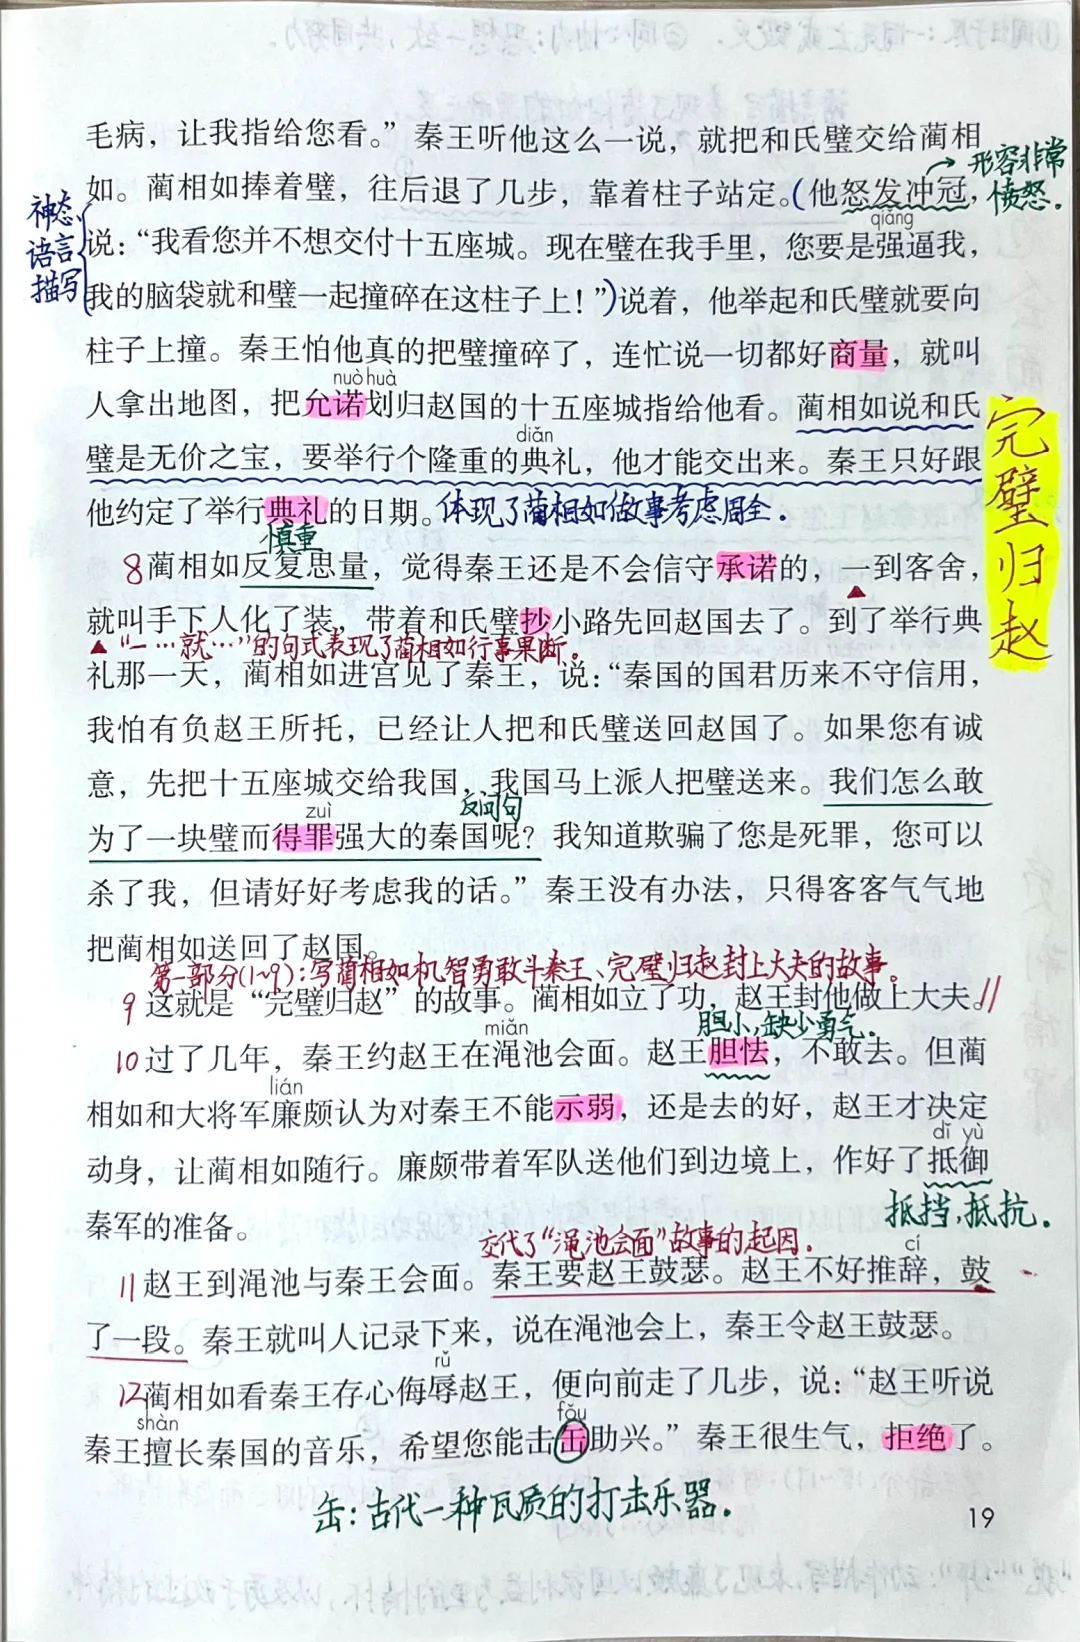 毛病，让我指给您看。”秦王听他这么一说，就把和氏璧交给蔺相
形容非常
愤怒.
如。蔺相如捧着璧，往后退了几步，靠着柱子站定。(他怒发冲冠，
神态
语言
描写
qiǎng
说：“我看您并不想交付十五座城。现在璧在我手里，您要是强逼我，
我的脑袋就和璧一起撞碎在这柱子上！”)说着，他举起和氏璧就要向
柱子上撞。秦王怕他真的把璧撞碎了，连忙说一切都好商量，就叫
nuò huà
人拿出地图，把允诺划归赵国的十五座城指给他看。蔺相如说和氏
diǎn
璧是无价之宝，要举行个隆重的典礼，他才能交出来。秦王只好跟
他约定了举行典礼的日期。体现了蔺相如做事考虑周全.
完璧归赵
慎重
8蔺相如反复思量，觉得秦王还是不会信守承诺的，一到客舍，
就叫手下人化了装，带着和氏璧抄小路先回赵国去了。到了举行典
▲“一…就…”的句式表现了蔺相如行事果断。
礼那一天，蔺相如进宫见了秦王，说：“秦国的国君历来不守信用，
我怕有负赵王所托，已经让人把和氏璧送回赵国了。如果您有诚
意，先把十五座城交给我国，我国马上派人把璧送来。我们怎么敢
反问句
zuì
为了一块璧而得罪强大的秦国呢？我知道欺骗了您是死罪，您可以
杀了我，但请好好考虑我的话。”秦王没有办法，只得客客气气地
把蔺相如送回了赵国。
第一部分(1~9):写蔺相如机智勇敢斗秦王、完璧归赵封上大夫的故事。
9 这就是“完璧归赵”的故事。蔺相如立了功，赵王封他做上大夫。//
胆小,缺少勇气.
miǎn
10过了几年，秦王约赵王在渑池会面。赵王胆怯，不敢去。但蔺
lián
相如和大将军廉颇认为对秦王不能示弱，还是去的好，赵王才决定
dǐ yù
动身，让蔺相如随行。廉颇带着军队送他们到边境上，作好了抵御
抵挡,抵抗.
秦军的准备。
交代了“渑池会面”故事的起因.
cí
11赵王到渑池与秦王会面。秦王要赵王鼓瑟。赵王不好推辞，鼓
了一段。秦王就叫人记录下来，说在渑池会上，秦王令赵王鼓瑟。
rǔ
12蔺相如看秦王存心侮辱赵王，便向前走了几步，说：“赵王听说
shàn
fǒu
秦王擅长秦国的音乐，希望您能击缶助兴。”秦王很生气，拒绝了。
缶:古代一种瓦质的打击乐器.
19